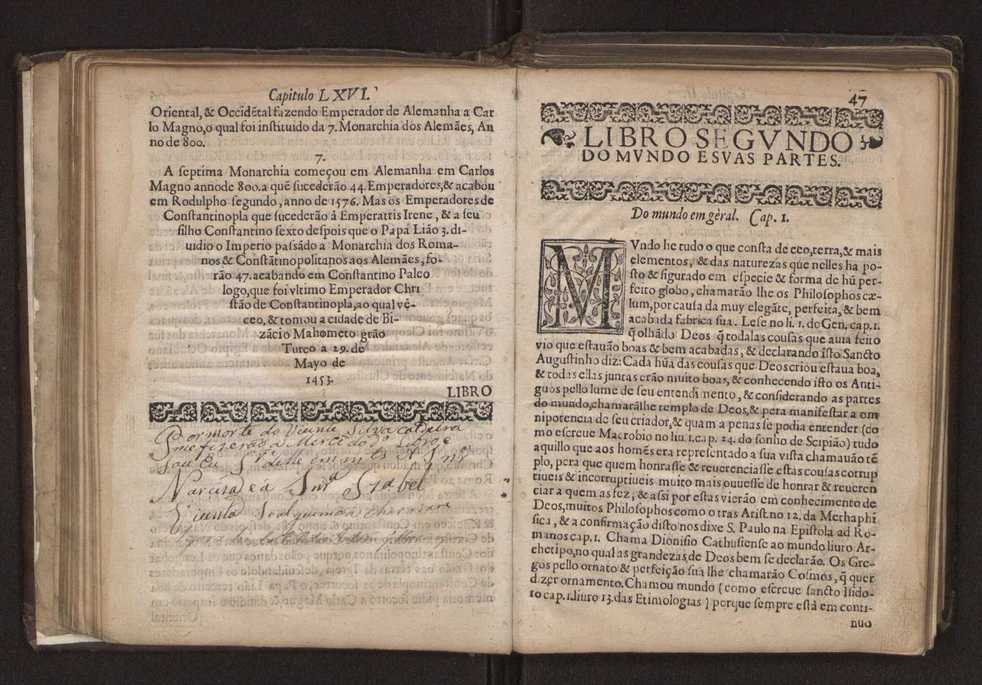 Capitulo LXVI.
Oriental, & Occidẽtal fazendo Emperador de Alemanha a Car
lo Magno, o qual foi instituido da 7. Monarchia dos Alemães, An
no de 800.
7.
A septima Monarchia começou em Alemanha em Carlos
Magno anno de 800. a quẽ sucederão 44. Emperadores, & acabou
em Rodulpho segundo, anno de 1576. Mas os Emperadores de
Constantinopla que sucederão á Emperatris Irene, & a seu
filho Constantino sexto despois que o Papa Lião 3. di-
uidio o Imperio passado a Monarchia dos Roma-
nos & Constãtinopolitanos aos Alemães, fo-
rão 47. acabando em Constantino Paleo
logo, que foi vltimo Emperador Chri
stão de Constantinopla, ao qual vẽ-
ceo, & tomou a cidade de Bi-
zácio Mahometo grão
Turco a 29. de
Mayo de
1453.
LIBRO
Por morte do
Narciza e a Snrᵃ Izabel
47
LIBRO SEGVNDO
DO MVNDO E SVAS PARTES.
Do mundo em gèral. Cap. 1.
MVndo he tudo o que consta de ceo, terra, & mais
elementos, & das naturezas que nelles ha po-
sto & figurado em especie & forma de hũ per-
feito globo, chamarão lhe os Philosophos cæ-
lum, por causa da muy elegãte, perfeita, & bem
acabada fabrica sua. Lese no li. 1. do Gen. cap. 1.
q̃ olhãdo Deos q̃ todalas cousas que auia feito
vio que estauão boas & bem acabadas, & declarando isto Sancto
Augustinho diz: Cada hũa das cousas que Deos criou estaua boa,
& todas ellas juntas erão muito boas, & conhecendo isto os Anti-
guos pello lume de seu entendimento, & considerando as partes
do mundo, chamarãlhe templo de Deos, & pera manifestar a om
nipotencia de seu criador, & quam a penas se podia entender (co
mo escreue Macrobio no liu. 1. cap. 14. do sonho de Scipião) tudo
aquillo que aos homẽs era representado a sua vista chamauão tẽ
plo, pera que quem honrasse & reuerenciasse estas cousas corrup
tiueis & incorruptiueis muito mais ouuesse de honrar & reueren
ciar a quem as fez, & assi por estas vierão em conhecimento de
Deos, muitos Philosophos como otras Arist. no 12. da Methaphi
sica, & a confirmação disto nos dixe S. Paulo na Epistola ad Ro-
manos cap. 1. Chama Dionisio Cathusiense ao mundo liuro Ar-
chetipo, no qual as grandezas de Deos bem se declarão. Os Gre-
gos pello ornato & perfeição sua lhe chamarão Cosmos, q̃ quer
dizer ornamento. Chamou mundo (como escreue sancto Isido-
ro cap. 1. liuro 13. das Etimologias) perque sempre està em conti-
nuo